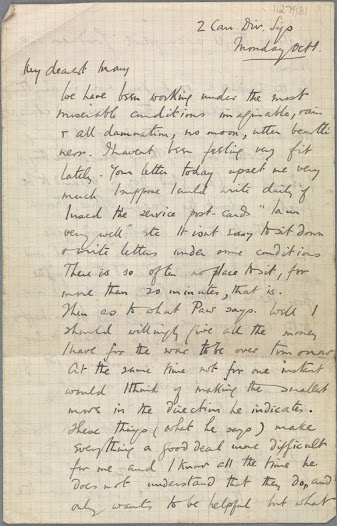 11279/81
2 Can. Div. Sigs
Monday Oct 1.
My dearest May
We have been working under the most
miserable conditions imaginable, rain
& all damnation, no moon, utter beastli
ness. I havent been feeling very fit
lately. Your letter today upset me very
much. I suppose I could write daily if
I used the service post-cards "I am
very well" etc It isnt easy to sit down
& write letters under some conditions
There is so often no place to sit, for
more than 20 minutes, that is.
Then as to what Paw says. Well I
should willingly give all the money
I have for the war to be over tomorrow
At the same time not for one instant
would I think of making the smallest
move in the direction he indicates.
These things (what he says) make
everything a good deal more difficult
for me and I know all the time he
does not understand that they do, and
only wants to be helpful but what